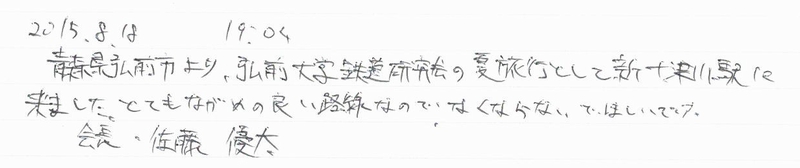 2015.8.18 19:04
青森県弘前市より、弘前大学鉄道研究会の夏旅行として新十津川駅に
来ました。とてもながめの良い路線なので、なくならないでほしいです。
会長・佐藤 優太